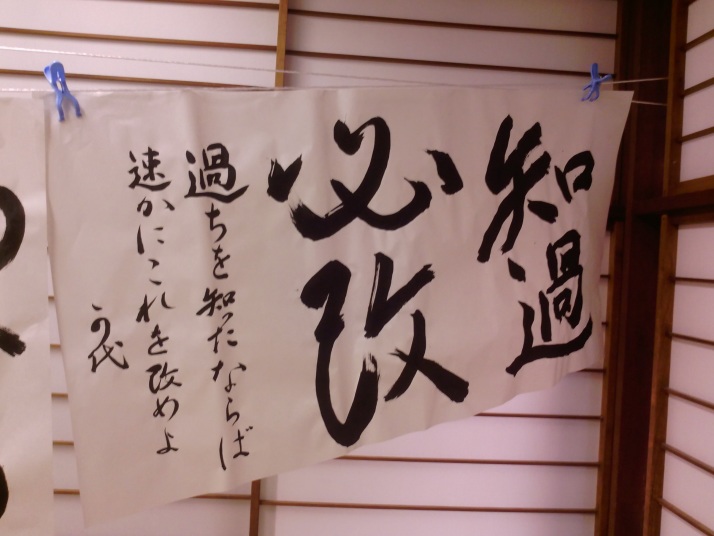 知過
必改
過ちを知ったならば
速かにこれを改めよ